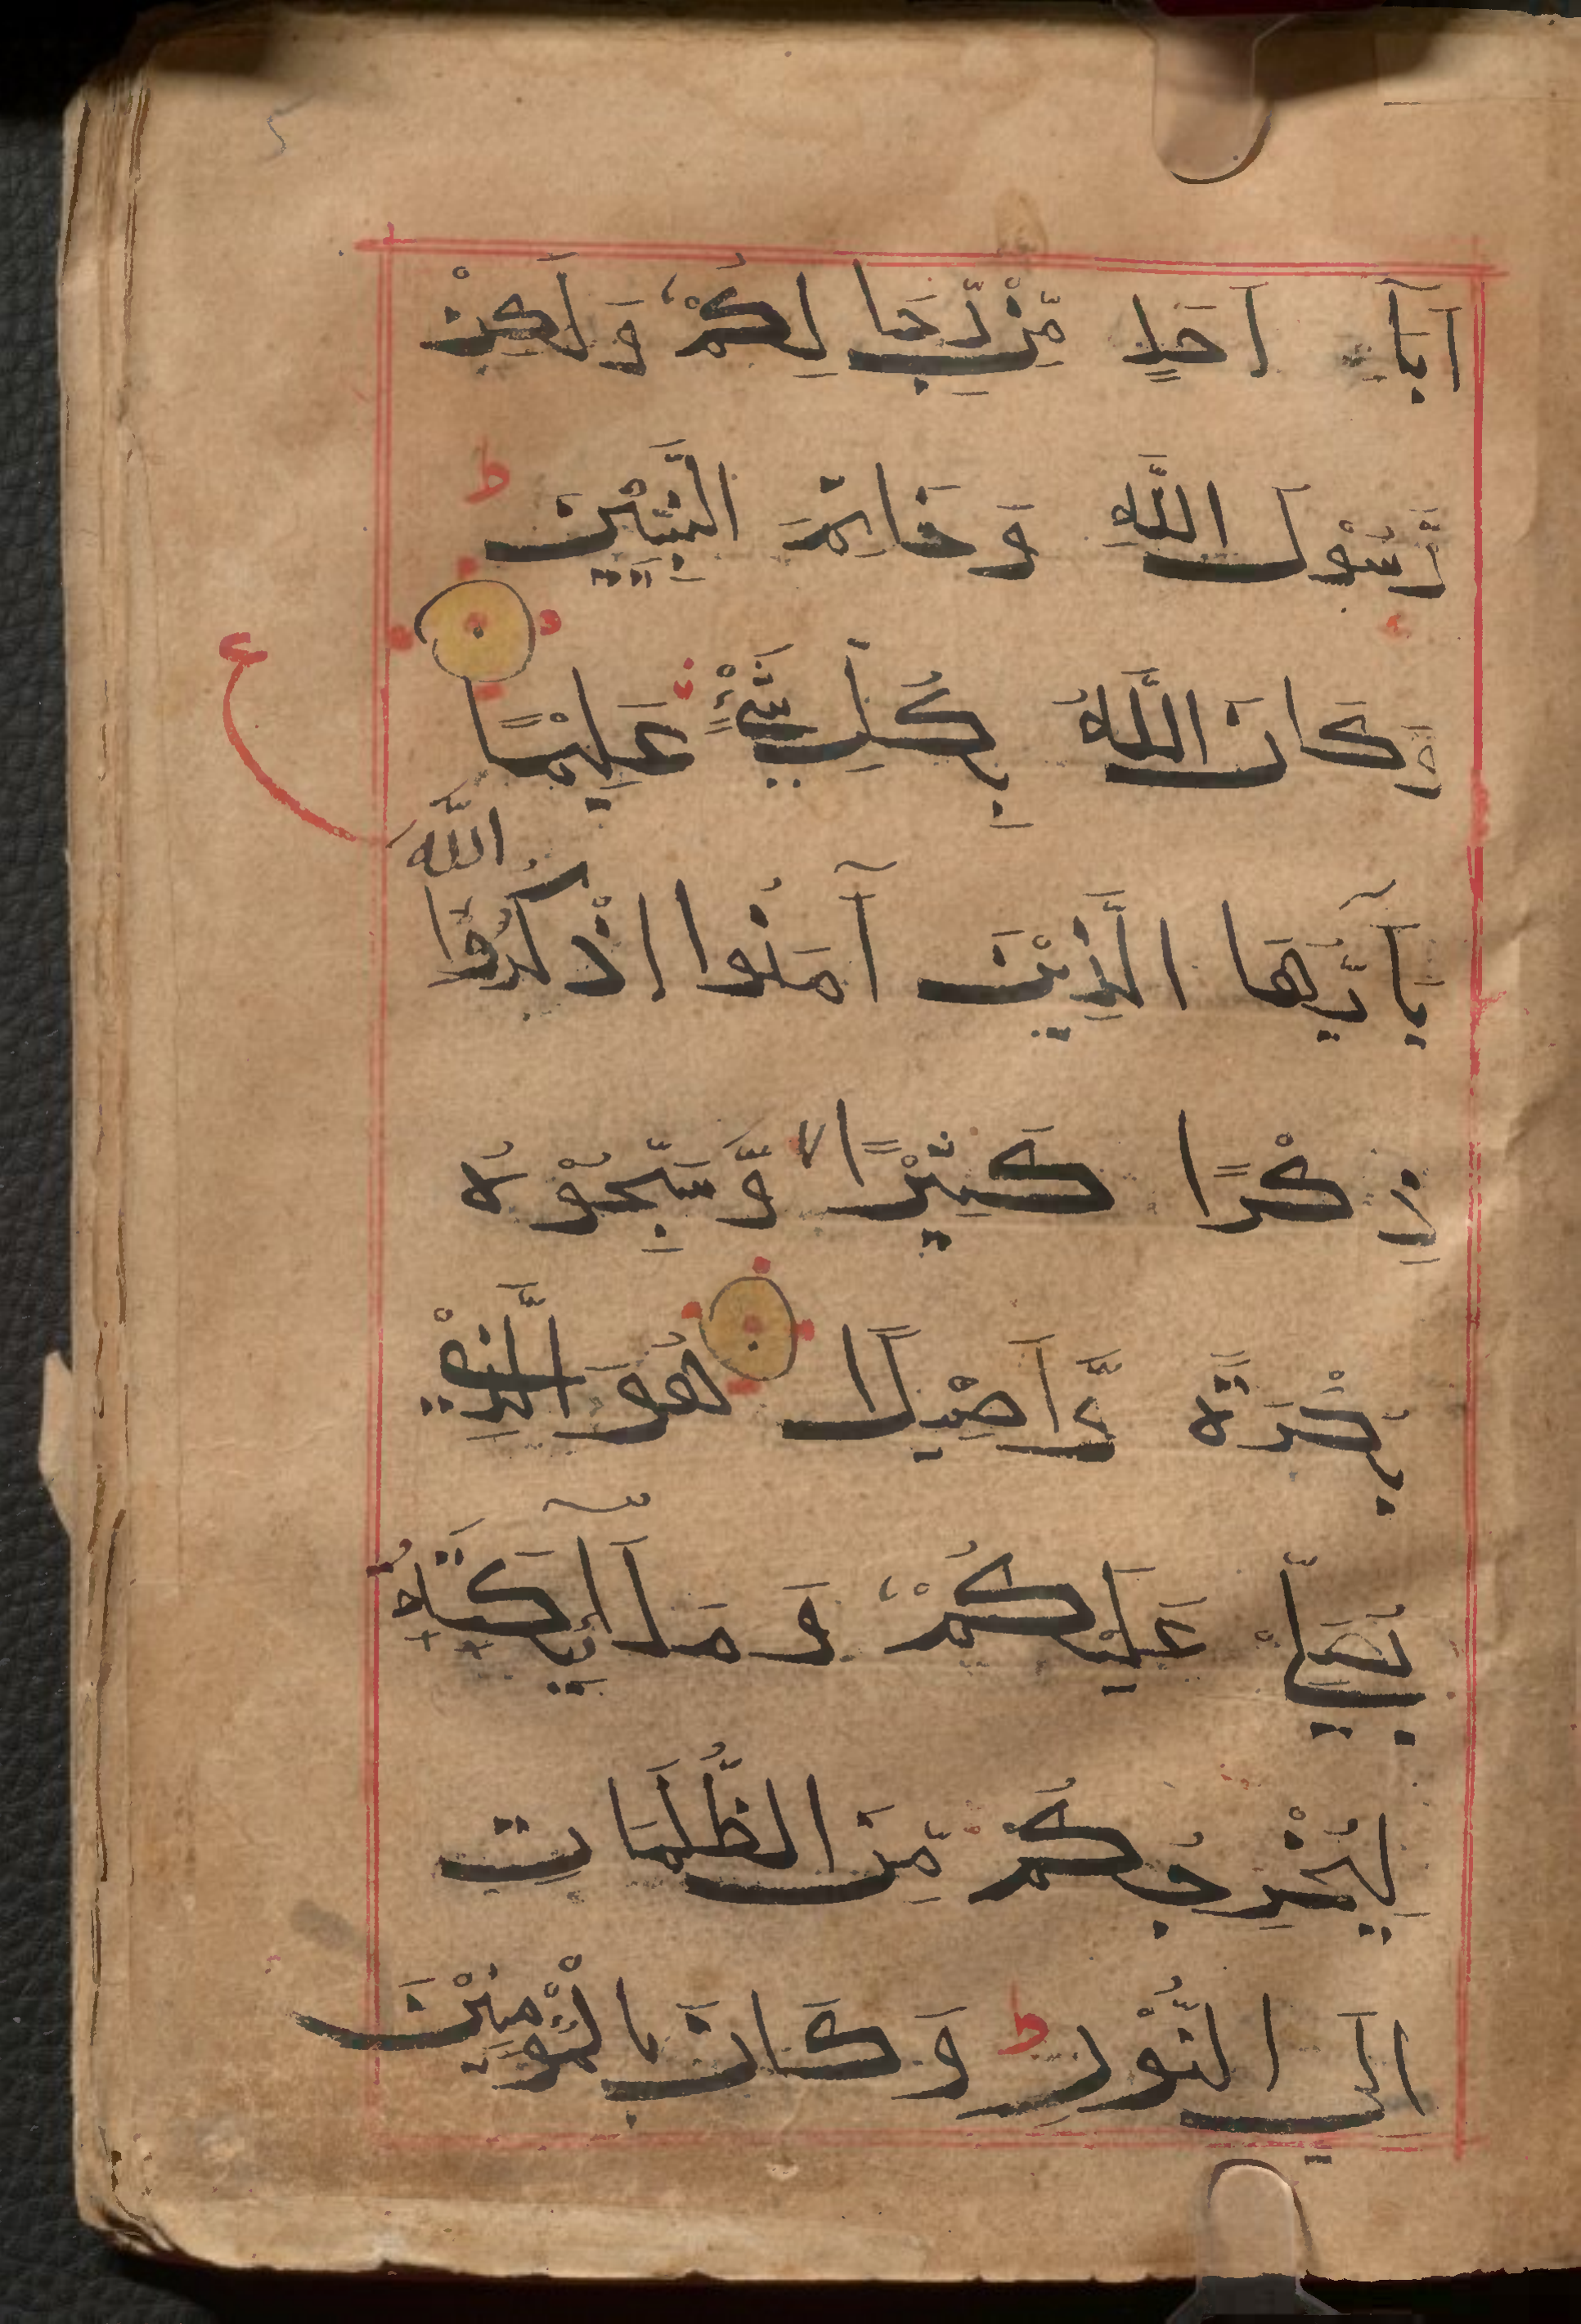 اَبَا اَحَدٍ مِّنْ رِّجَالِكُمْ وَلٰكِنْ
رَّسُوْلَ اللّٰهِ وَخَاتَمَ النَّبِيّٖنَ ط
وَكَانَ اللّٰهُ بِكُلِّ شَيْءٍ عَلِيْمًا
ع
يٰٓاَيُّهَا الَّذِيْنَ آمَنُوا اذْكُرُوا اللّٰهَ
ذِكْرًا كَثِيْرًا لا وَّسَبِّحُوْهُ
بُكْرَةً وَّاَصِيْلًا هُوَ الَّذِيْ
يُصَلِّيْ عَلَيْكُمْ وَمَلٰٓائِكَتُهٗ
لِيُخْرِجَكُمْ مِّنَ الظُّلُمَاتِ
اِلَى النُّوْرِ ط وَكَانَ بِالْمُؤْمِنِيْنَ